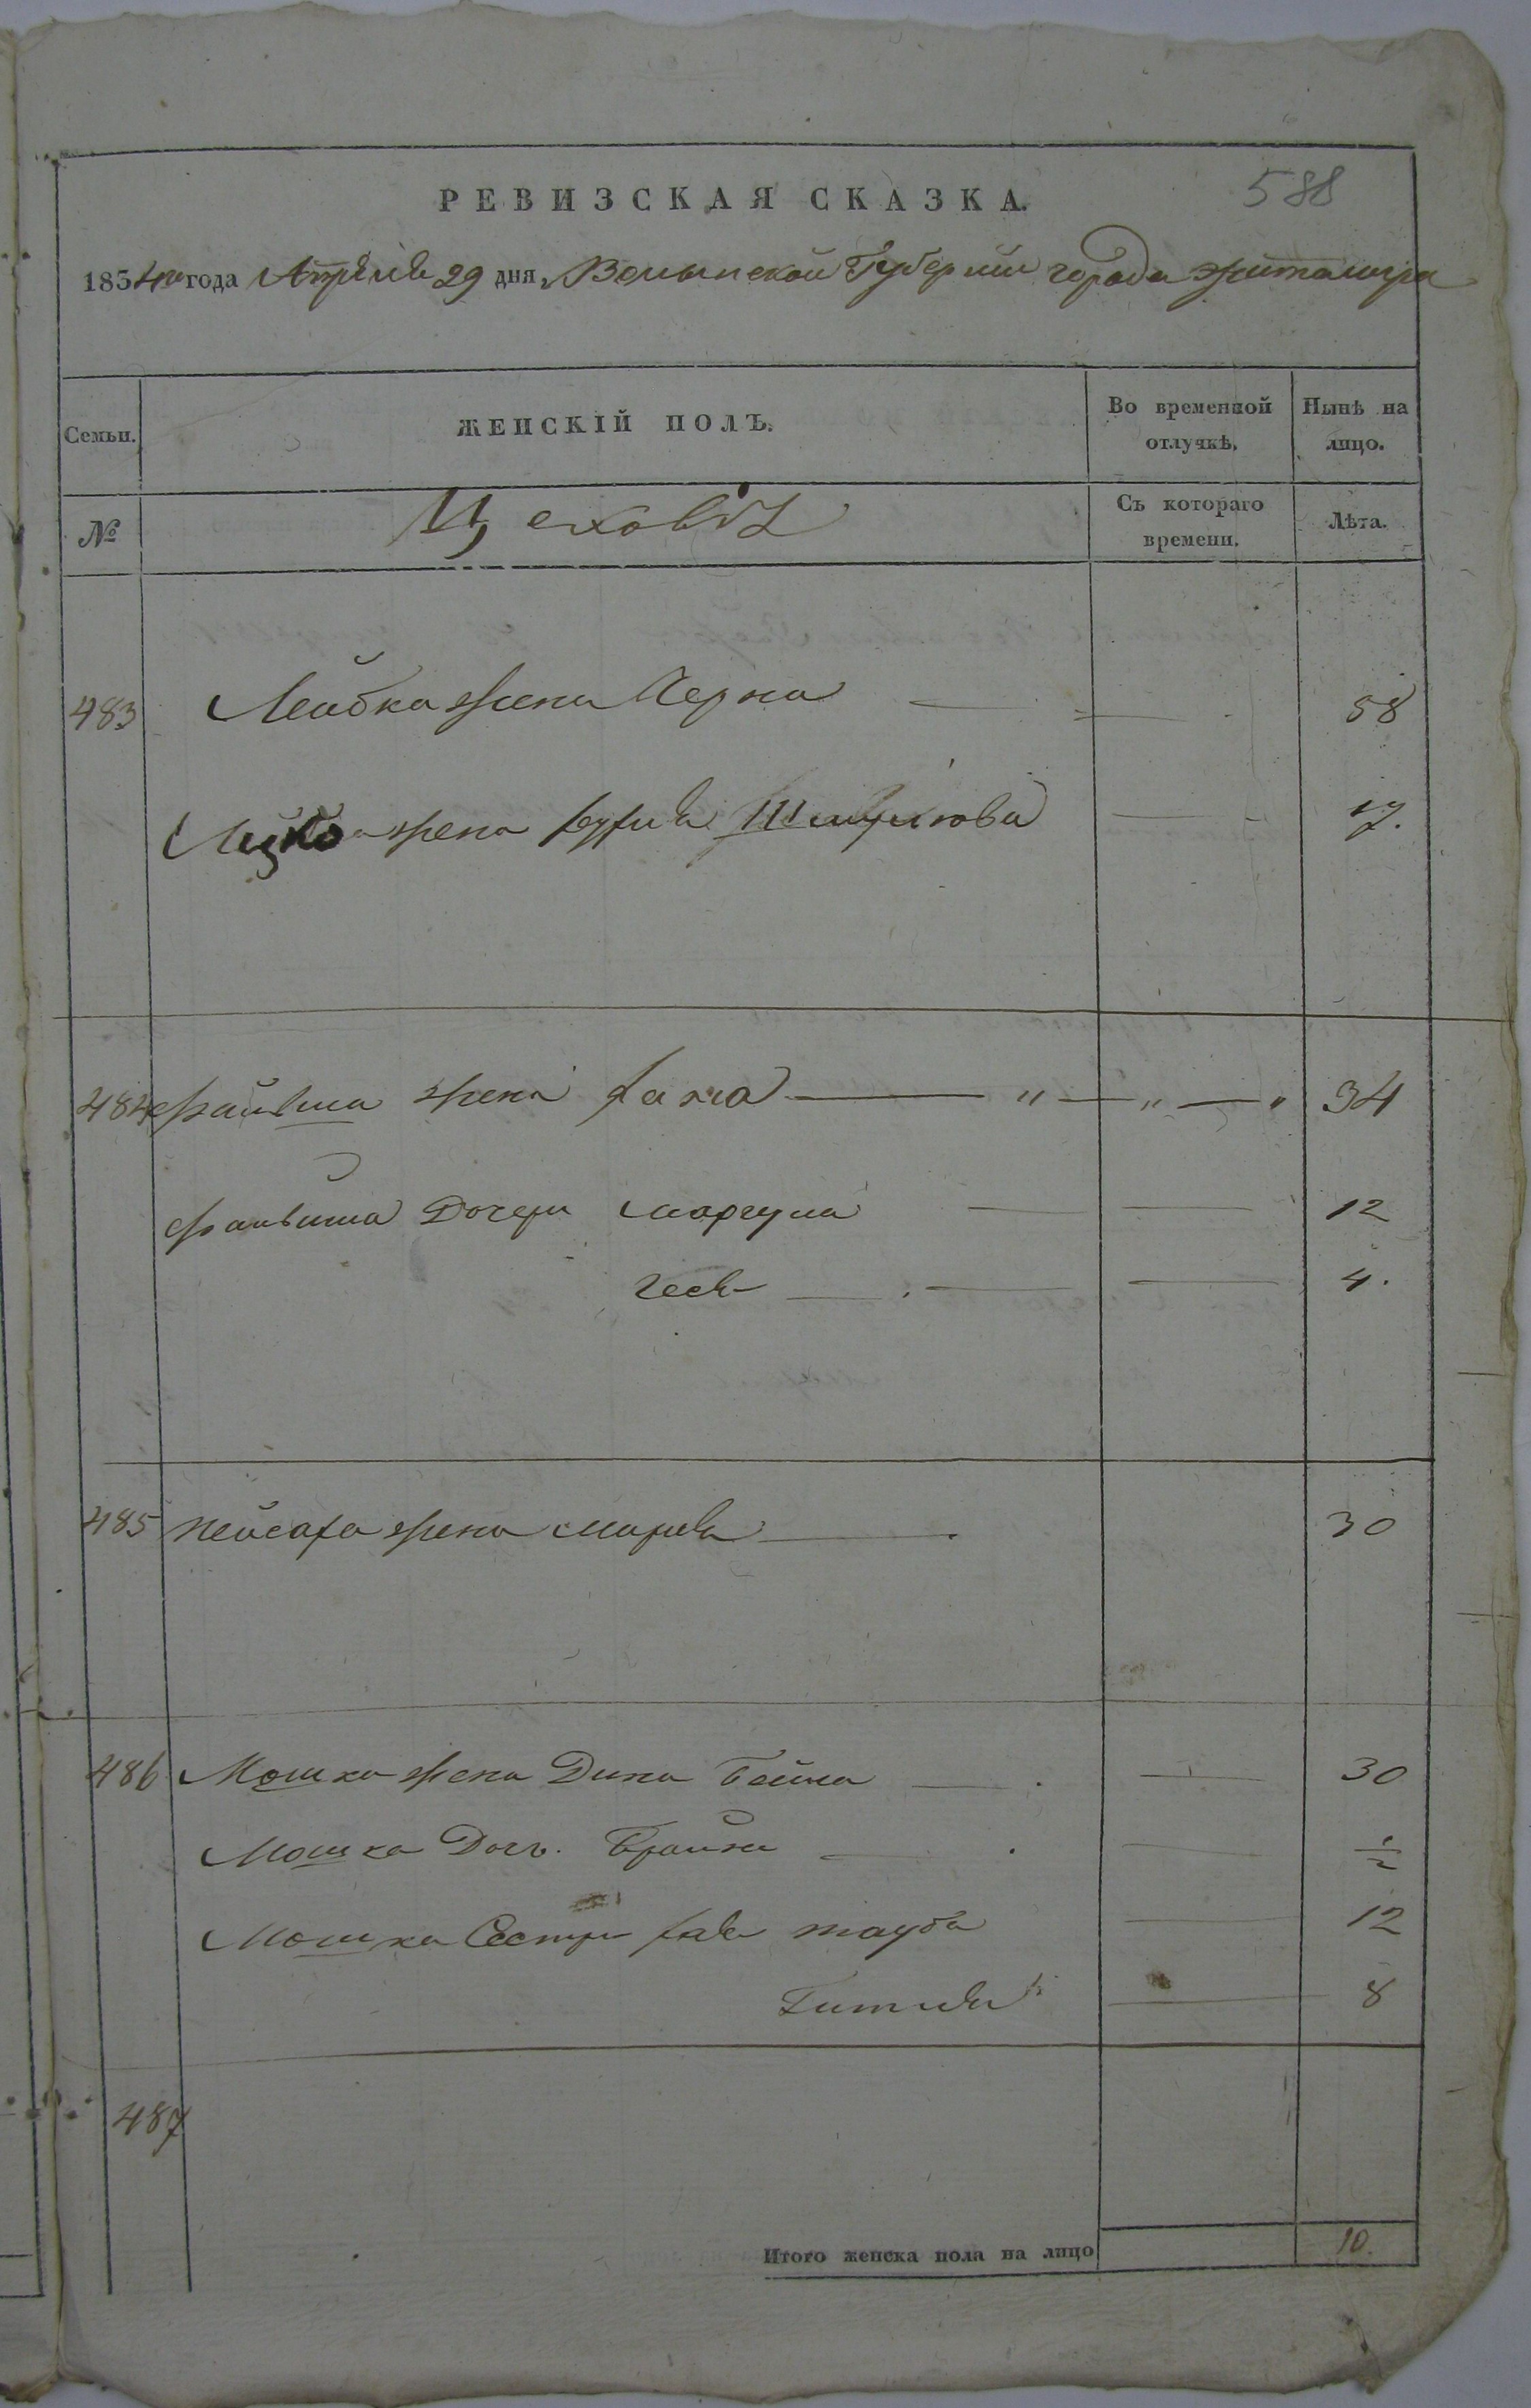 588
РЕВИЗСКАЯ СКАЗКА.
1854го года Апреля 29 дня, Волынской Губернии города Житомира
Семьи. ЖЕНСКІЙ ПОЛЪ. Во временной отлучкѣ. Нынѣ на лицо.
№ Цеховыхъ Съ котораго времени. Лѣта.
483 Лейбка жена Черна 58
Ицка жена 17.
484 Файвиша жена Хана 34
Файвиша Дочери 12
Геся 4.
485 Пейсаха жена Мария 30
486 Мошка жена Дина Бейла 30
Мошка Дочь. Брайна ½
Мошка Сестра Хая Тауба 12
Гитля 8
487
Итого женска пола на лицо 10.